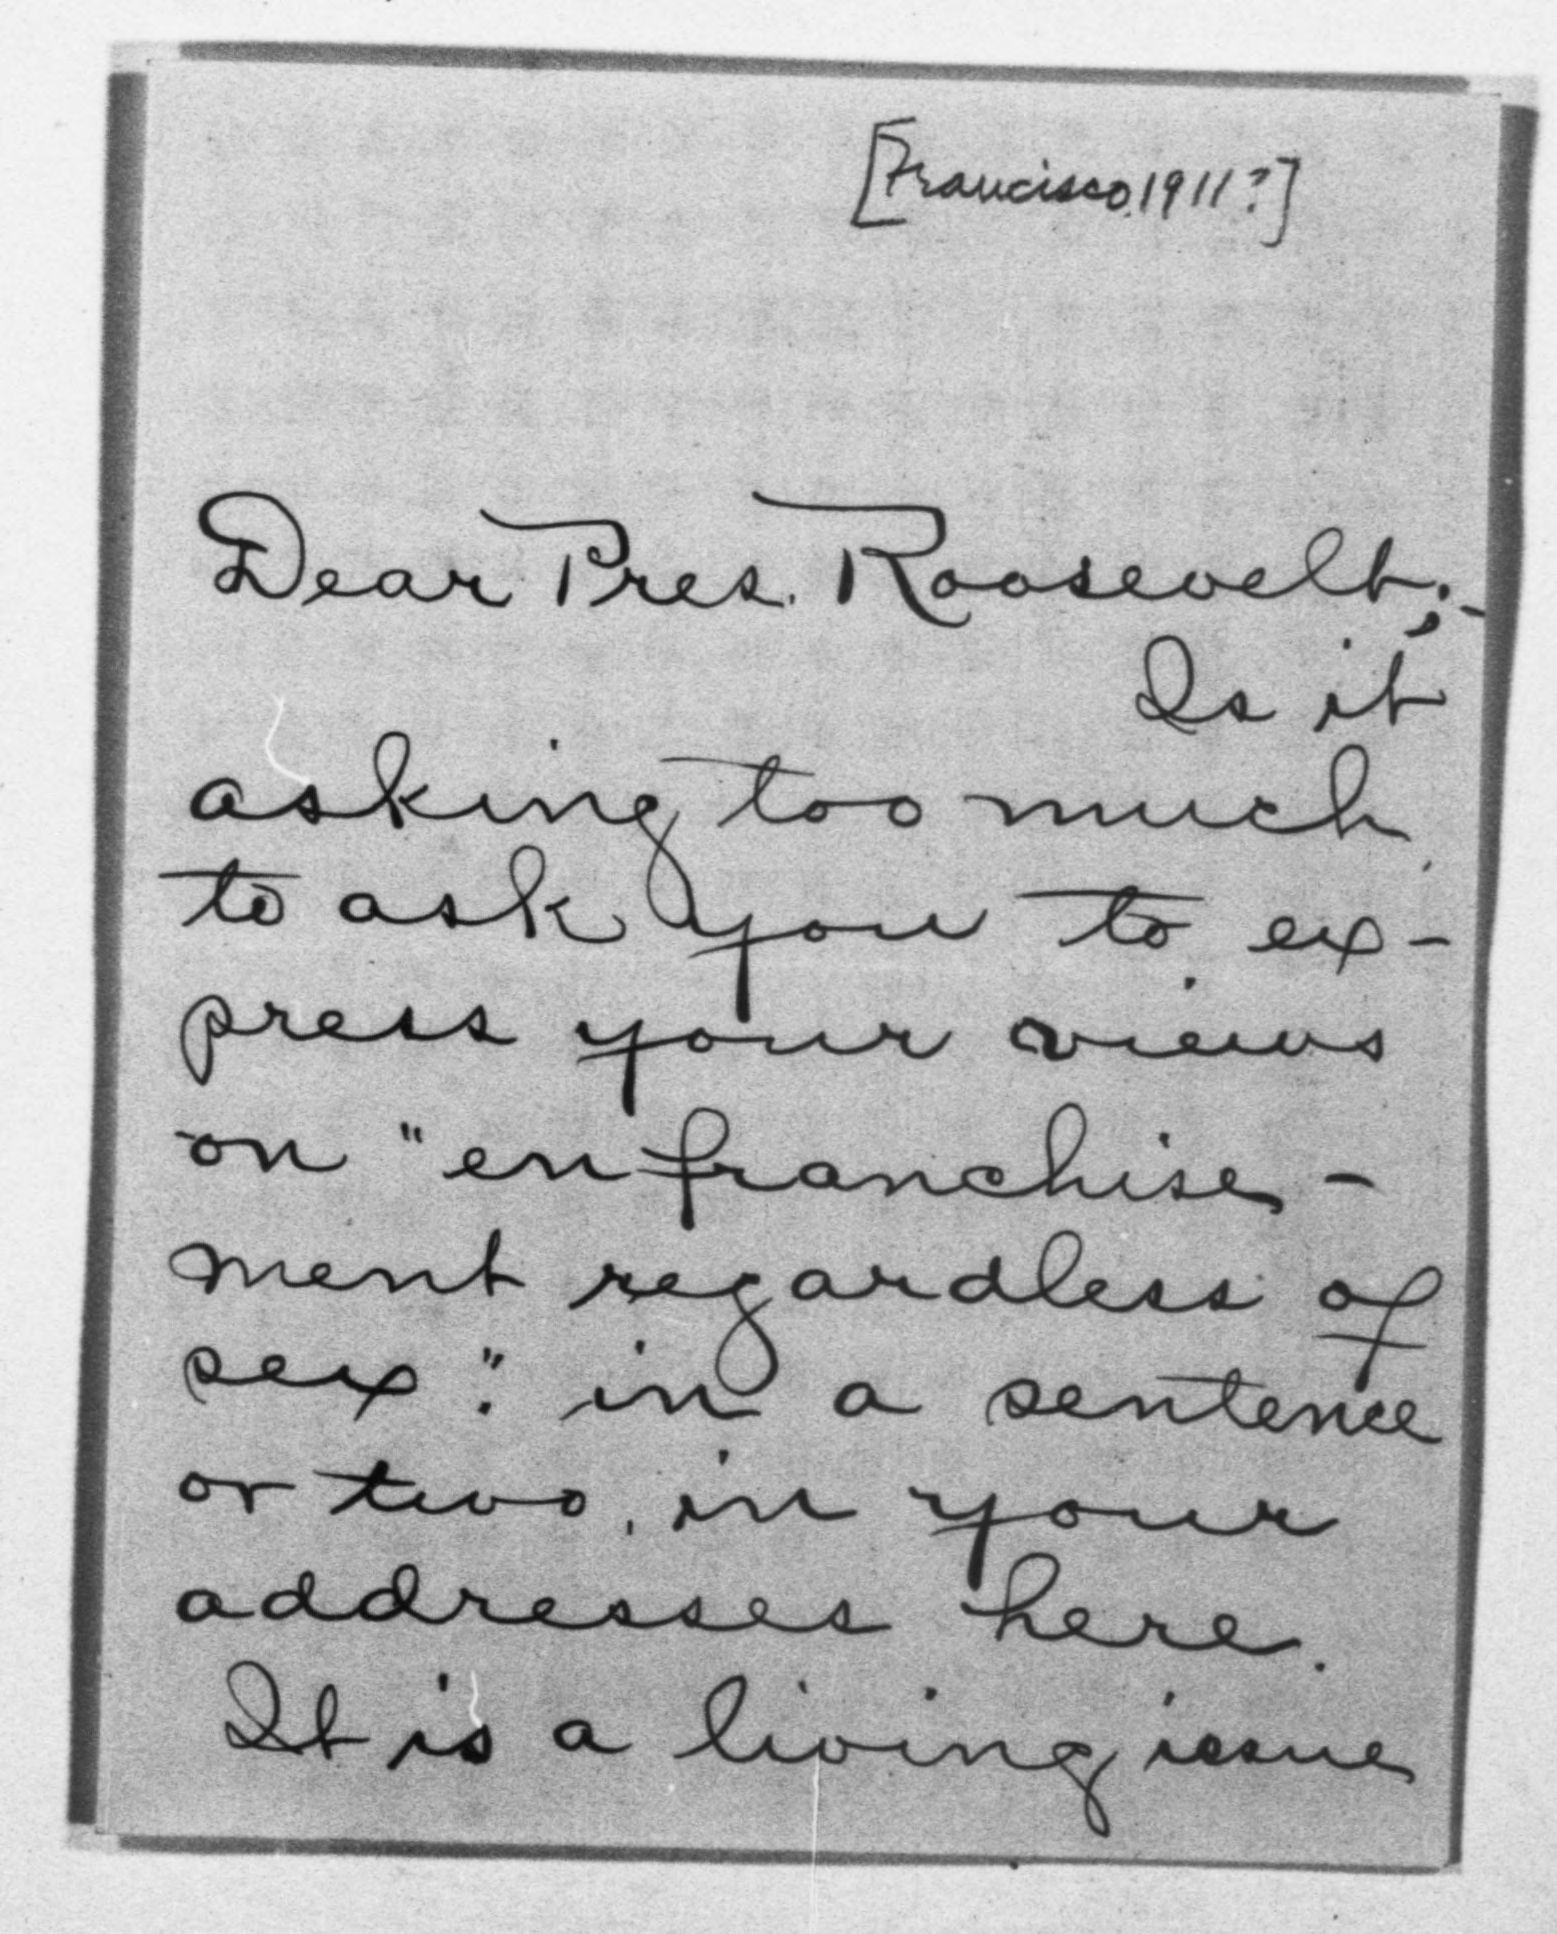 [Francisco, 1911?]
Dear Pres. Roosevelt;-
Is it
asking too much
to ask you to ex-
press your views
on "enfranchise-
ment regardless of
sex". in a sentence
or two, in your
addresses here.
It is a living issue